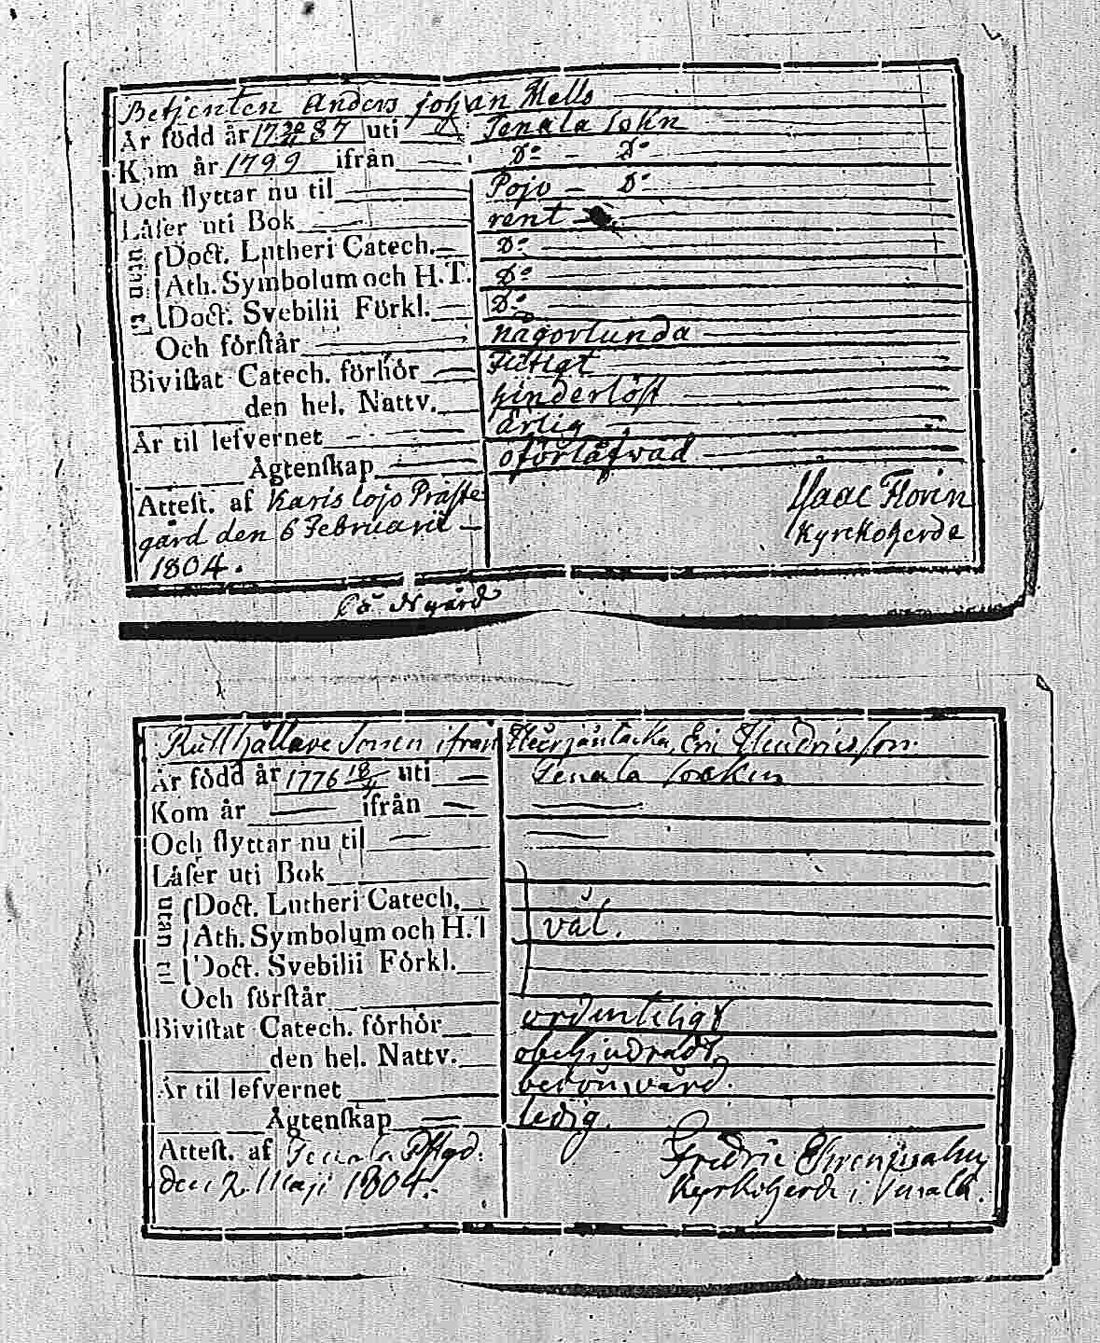 Betjenten Anders Johan Mells
Är född år 17 30/11 87 uti Tenala sokn
Kom år 1799 ifrån Do - Do
Och flyttar nu til Pojo - Do
Läser uti Bok rent
utan Doct. Lutheri Catech. Do
Ath. Symbolum och H. T. Do
Doct. Svebilii Förkl. Do
Och förstår någorlunda
Bivistat Catech. förhör flitigt
den hel. Nattv. hinderlöst
Är til lefvernet ärlig
Ägtenskap oförlåfvad
Attest. af Karis lojo Präste
gård den 6 Februarii
1804.
Isaac Florin
Kyrckoherde
Rusthållare Sonen ifrån Eric Hendricsson.
Är född år 1776 uti Tenala sockn
Kom år ifrån
Och flyttar nu til
Läser uti Bok
utan Doct. Lutheri Catech.
Ath. Symbolum och H. T
väl.
Doct. Svebilii Förkl.
Och förstår
Bivistat Catech. förhör ordenteligt
den hel. Nattv. obehindradt
Är til lefvernet berömvärd.
Ägtenskap ledig.
Attest. af Tenala Pstgd.
den 2 Maji 1804.
Fredric
Kyrkoherde i Tenala.